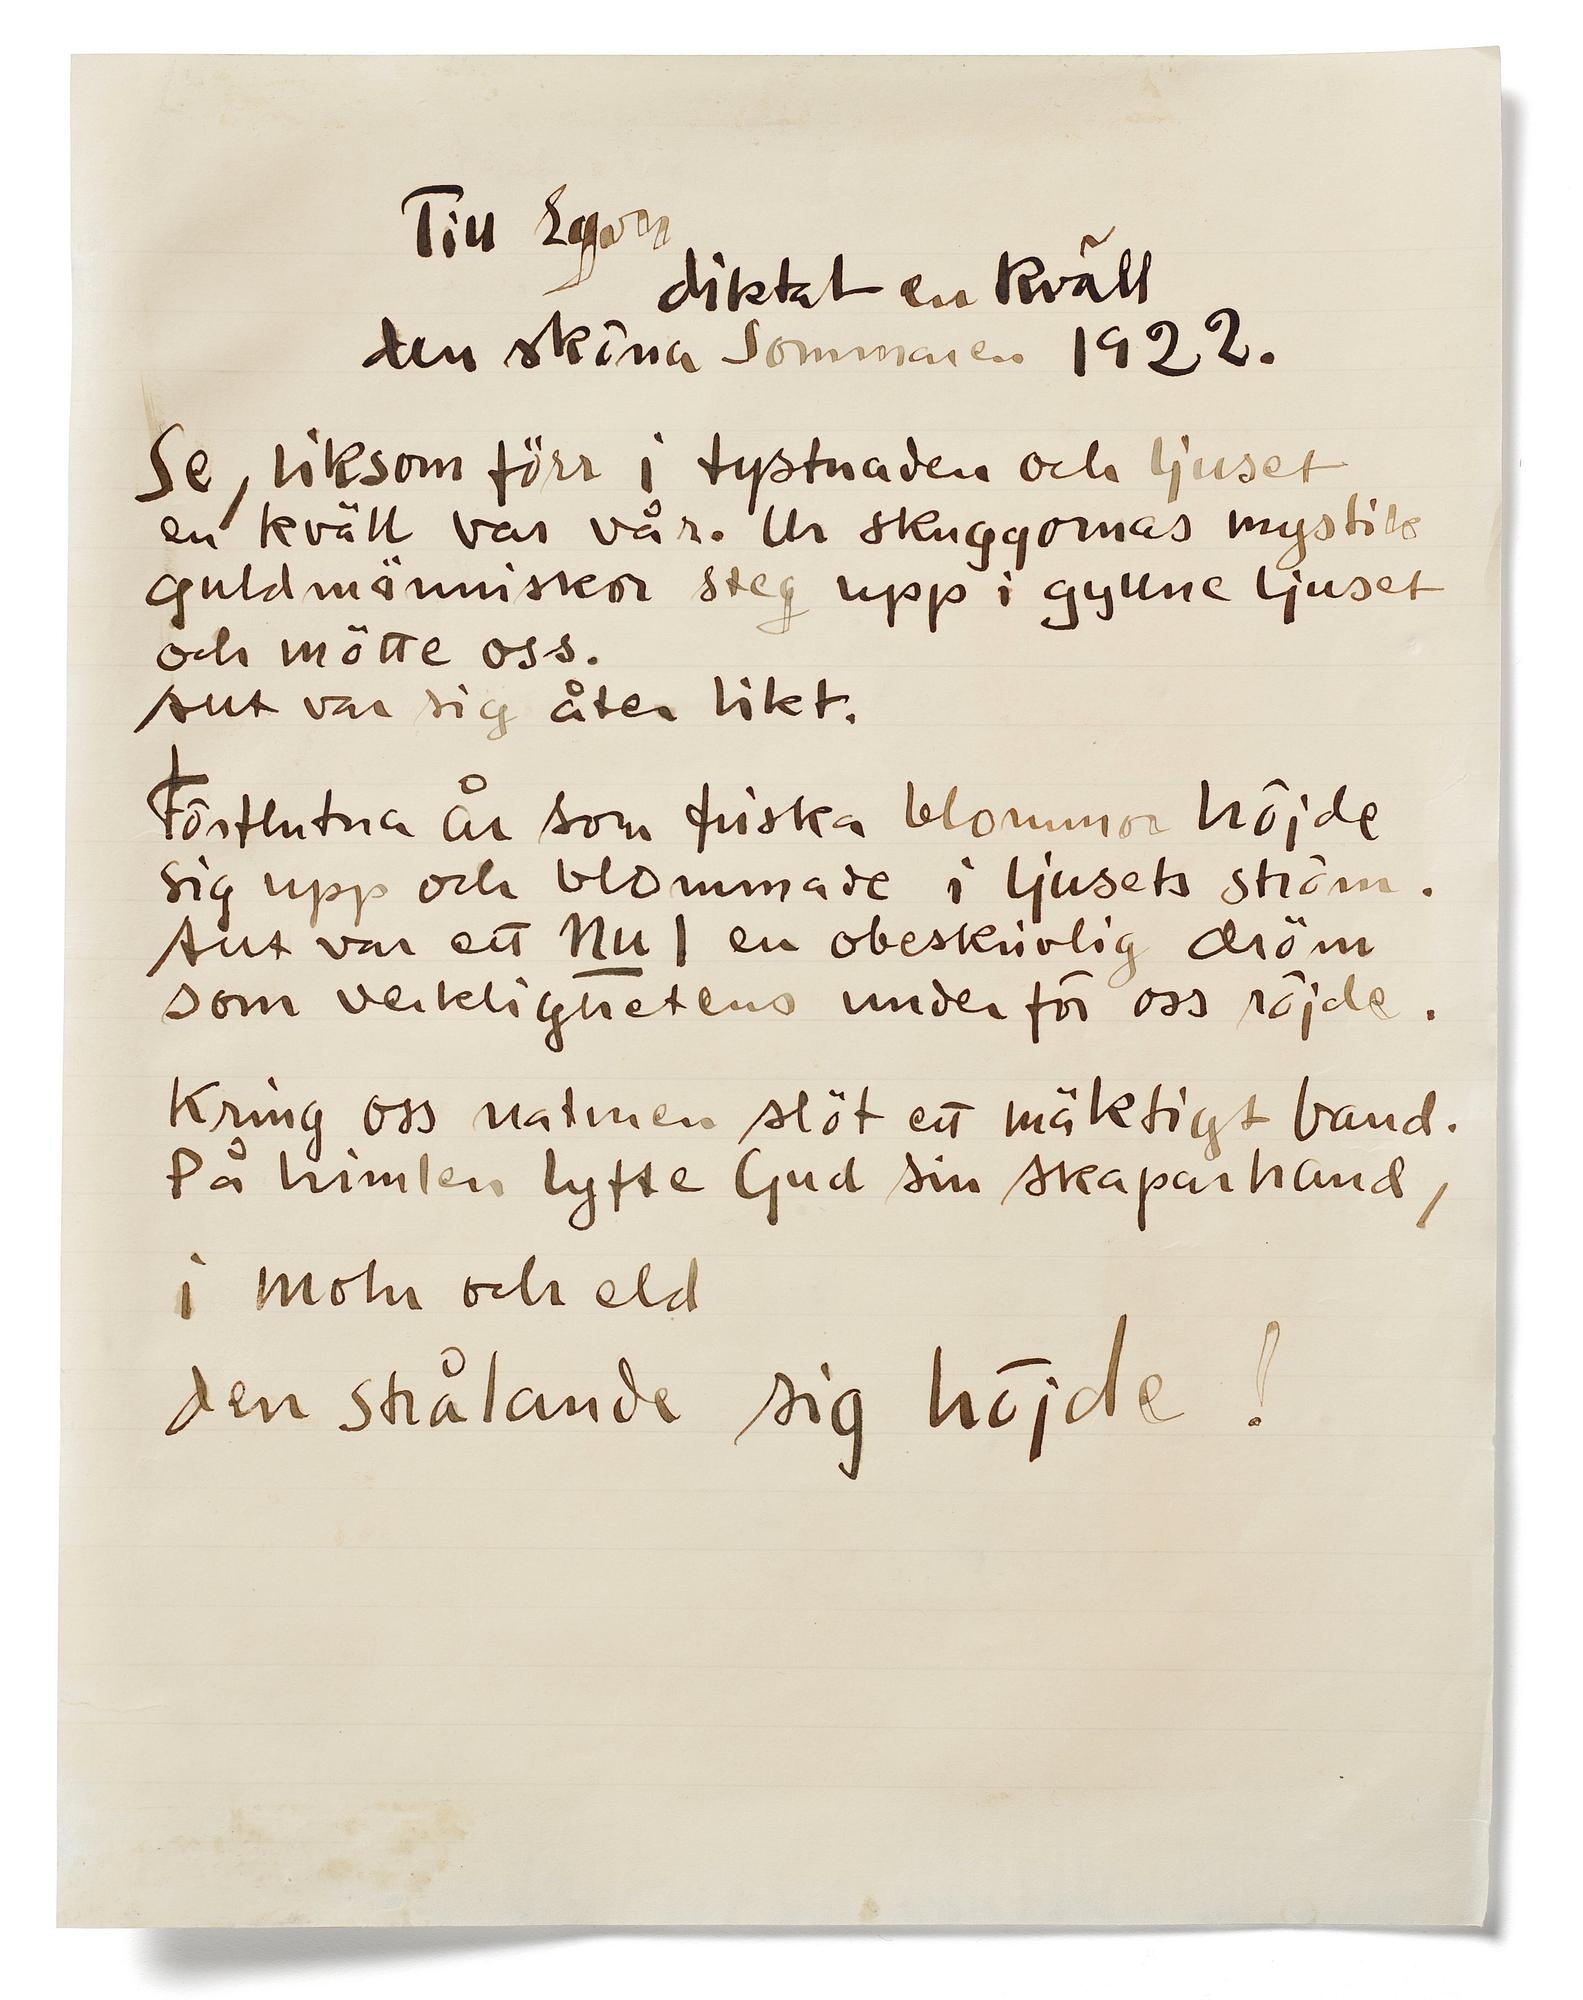 Till Egon
diktat en kväll
den sköna Sommaren 1922.
Se, liksom förr i tystnaden och ljuset
en kväll var vår. Ur skuggornas mystik
guldmänniskor steg upp i gyllne ljuset
och mötte oss.
Allt var sig åter likt.
Förflutna år som friska blommor höjde
sig upp och blommade i ljusets ström.
Allt var ett Nu! en obeskrivlig dröm
som verklighetens under för oss röjde.
Kring oss naturen slöt ett mäktigt band.
På himlen lyfte Gud sin skaparhand,
i moln och eld
den strålande sig höjde!